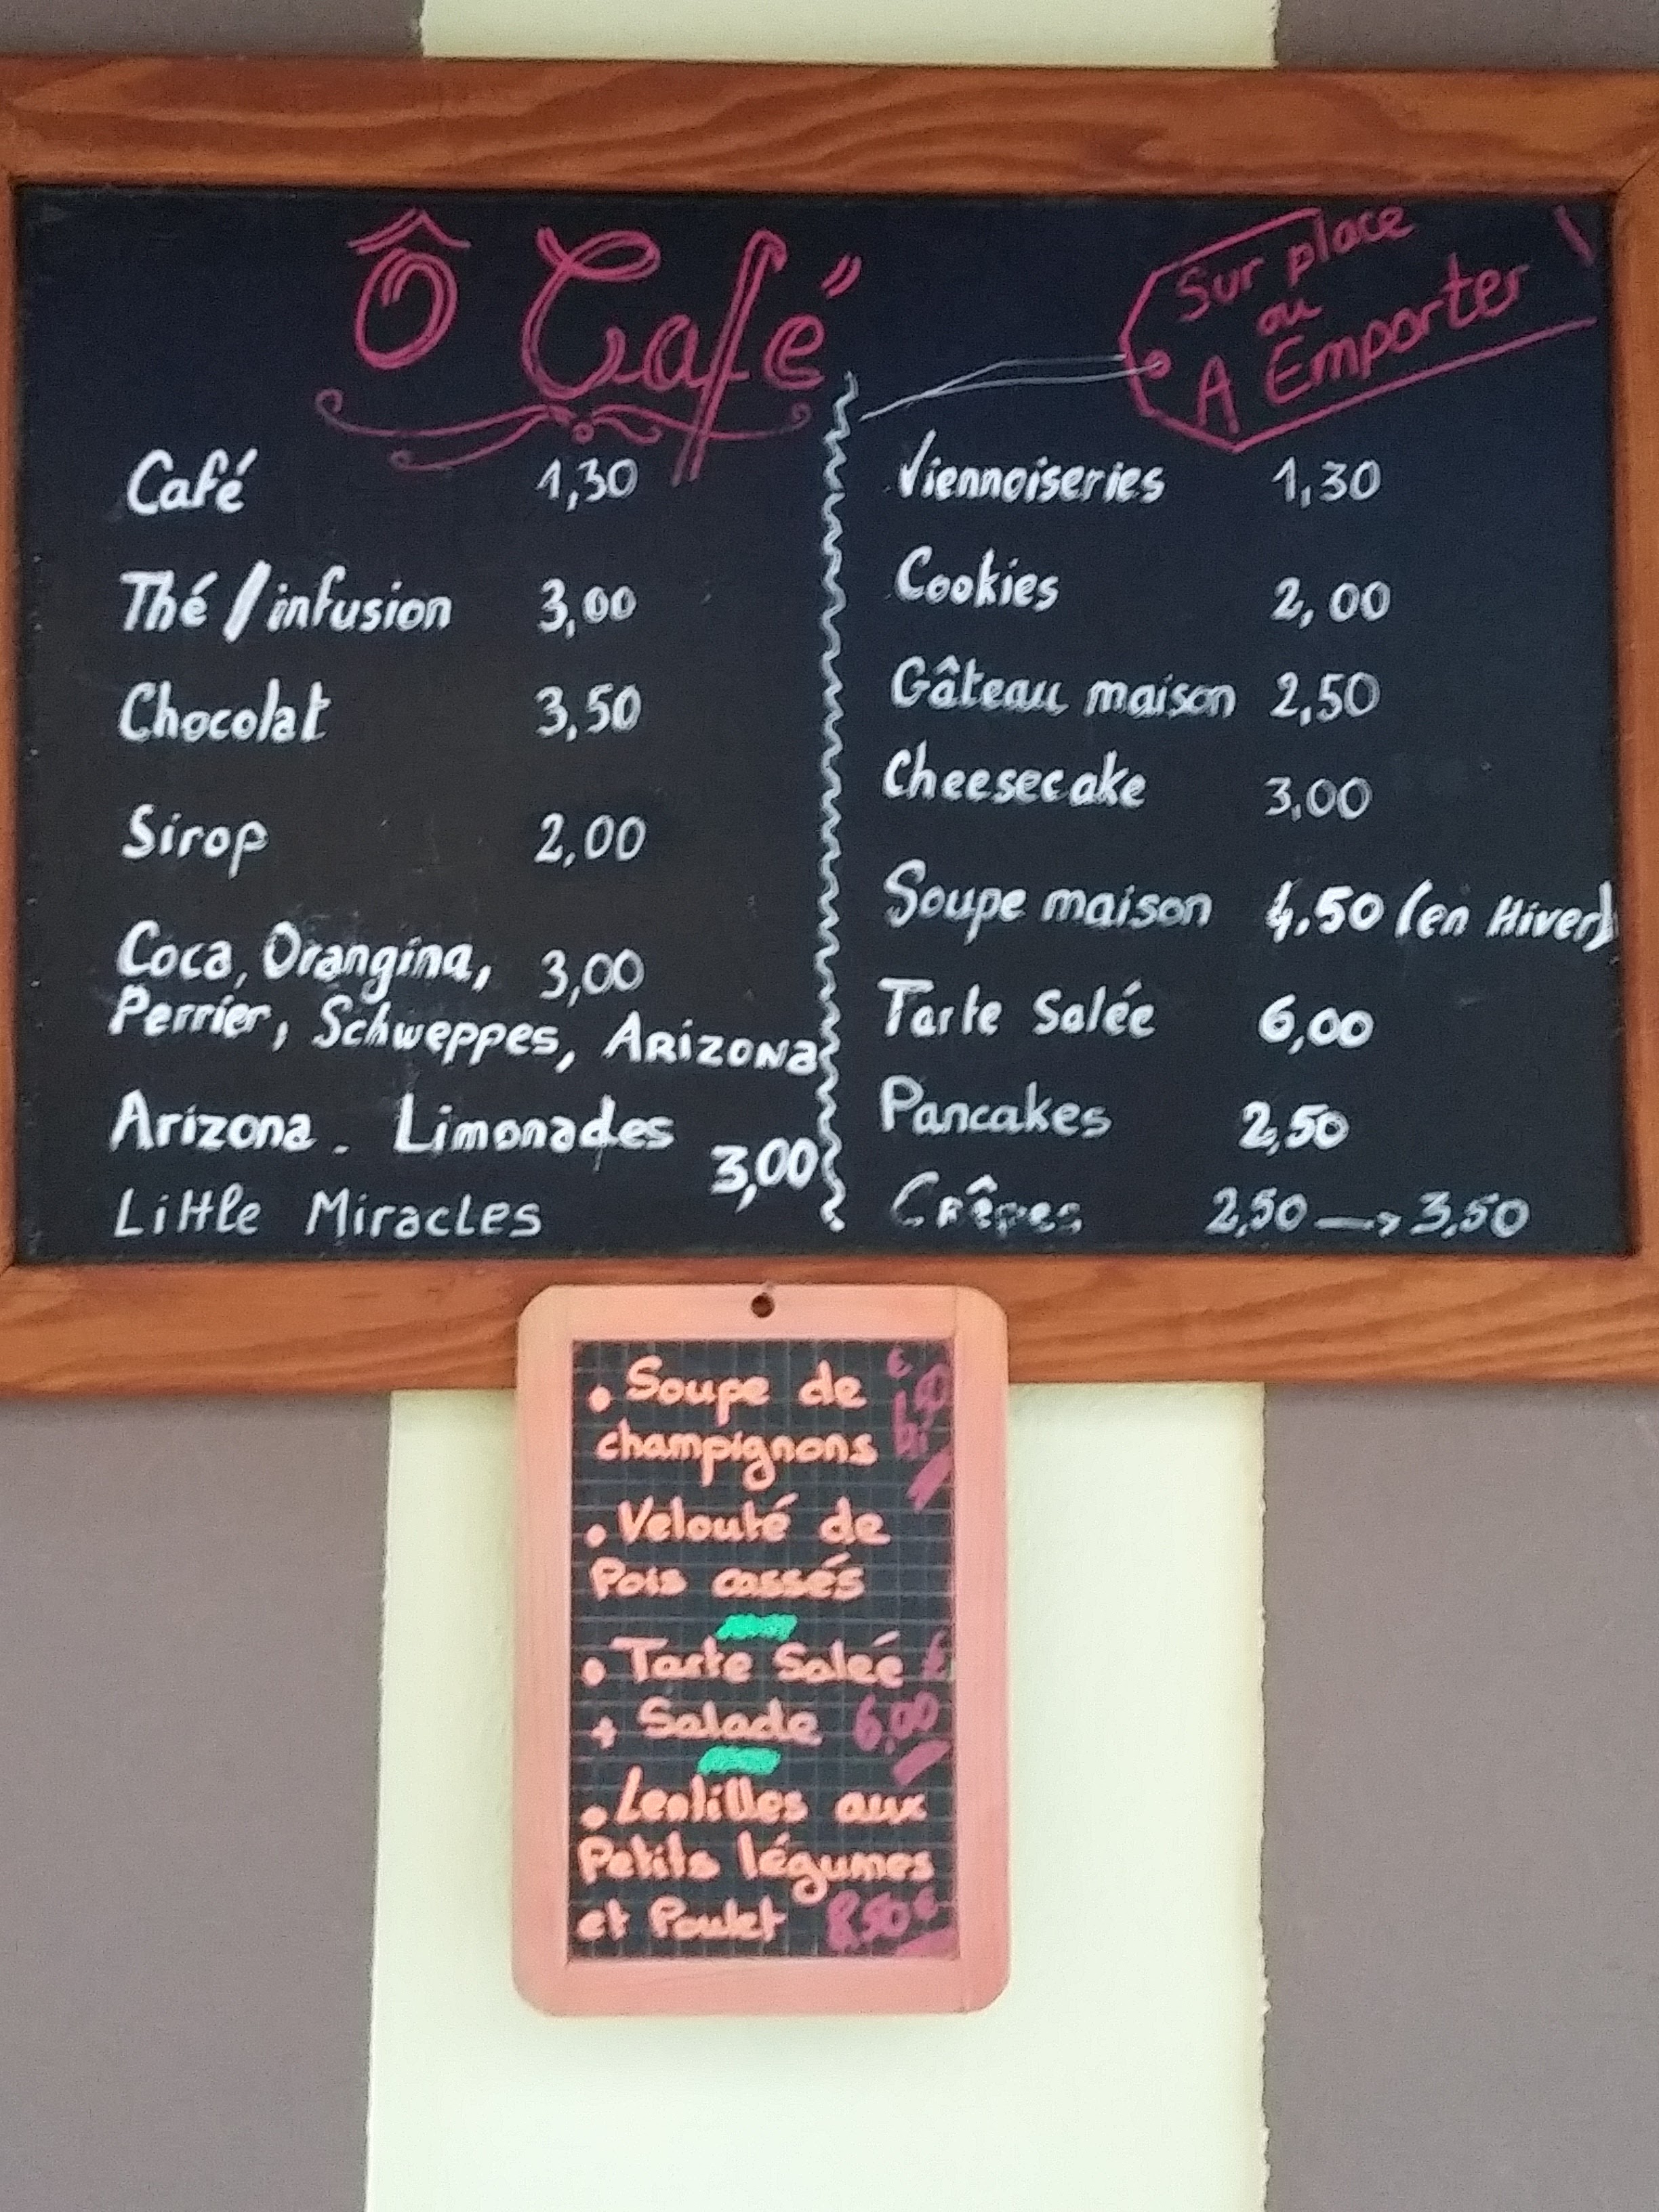 Ô Café
Sur place
ou
A Emporter
Café 1,30
Thé / infusion 3,00
Chocolat 3,50
Sirop 2,00
Coca, Orangina, 3,00
Perrier, Schweppes, Arizona
Arizona. Limonades
3,00
Little Miracles
Viennoiseries 1,30
Cookies 2,00
Gâteau maison 2,50
Cheesecake 3,00
Soupe maison 4,50 (en Hiver)
Tarte Salée 6,00
Pancakes 2,50
Crêpes 2,50 → 3,50
• Soupe de
champignons 4,50 €
• Velouté de
Pois cassés
• Tarte Saleé €
+ Salade 6,00
• Lentilles aux
Petits légumes
et Poulet 8,50 €